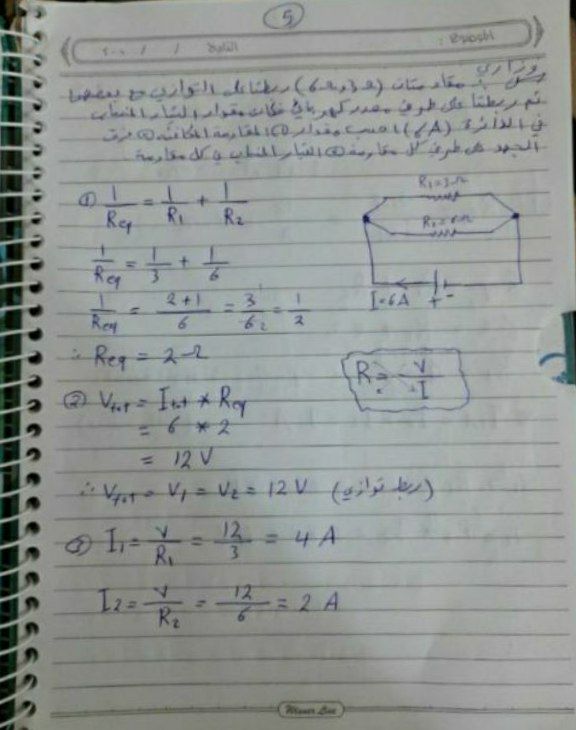 5
الموضوع :
التاريخ / / ٢٠٠
وزاري
س/ مقاومتان (3Ω و 6Ω) ربطتا على التوازي مع بعضهما
ثم ربطتا على طرفي مصدر كهربائي فكان مقدار التيار المنساب
في الدائرة (6A) احسب مقدار ① المقاومة المكافئة ② فرق
الجهد على طرفي كل مقاومة ③ التيار المنساب في كل مقاومة
R₁=3Ω
① 1/Req = 1/R₁ + 1/R₂
R₂=6Ω
1/Req = 1/3 + 1/6
I=6A + -
1/Req = 2+1/6 = 3/6 = 1/2
∴ Req = 2Ω
R = V/I
② Vtot = Itot * Req
= 6 * 2
= 12 V
∴ Vtot = V₁ = V₂ = 12 V (ربط توازي)
③ I₁ = V/R₁ = 12/3 = 4 A
I₂ = V/R₂ = 12/6 = 2 A
Winner Line